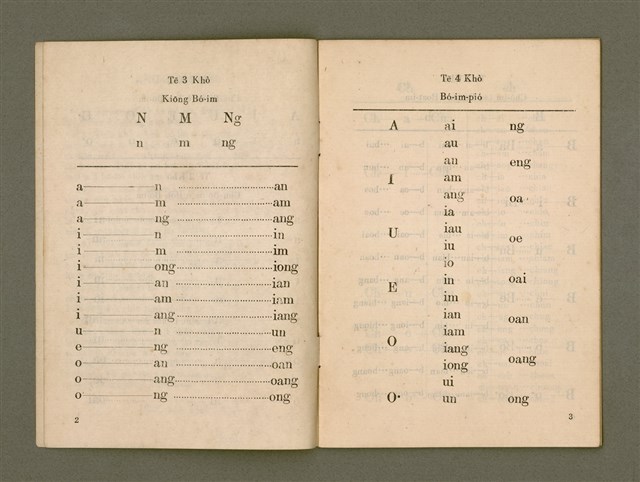 Tē 3 Khò
Kiōng Bó-im
N M Ng
n m ng
a n an
a m am
a ng ang
i n in
i m im
i ong iong
i an ian
i am iam
i ang iang
u n un
e ng eng
o an oan
o ang oang
o ng ong
2
Tē 4 Khò
Bó-im-pió
A ai ng
au
an eng
I am
ang oa
ia
U iau
iu oe
io
E in oai
im
ian oan
O iam
iang oang
iong
ui
O· un ong
3